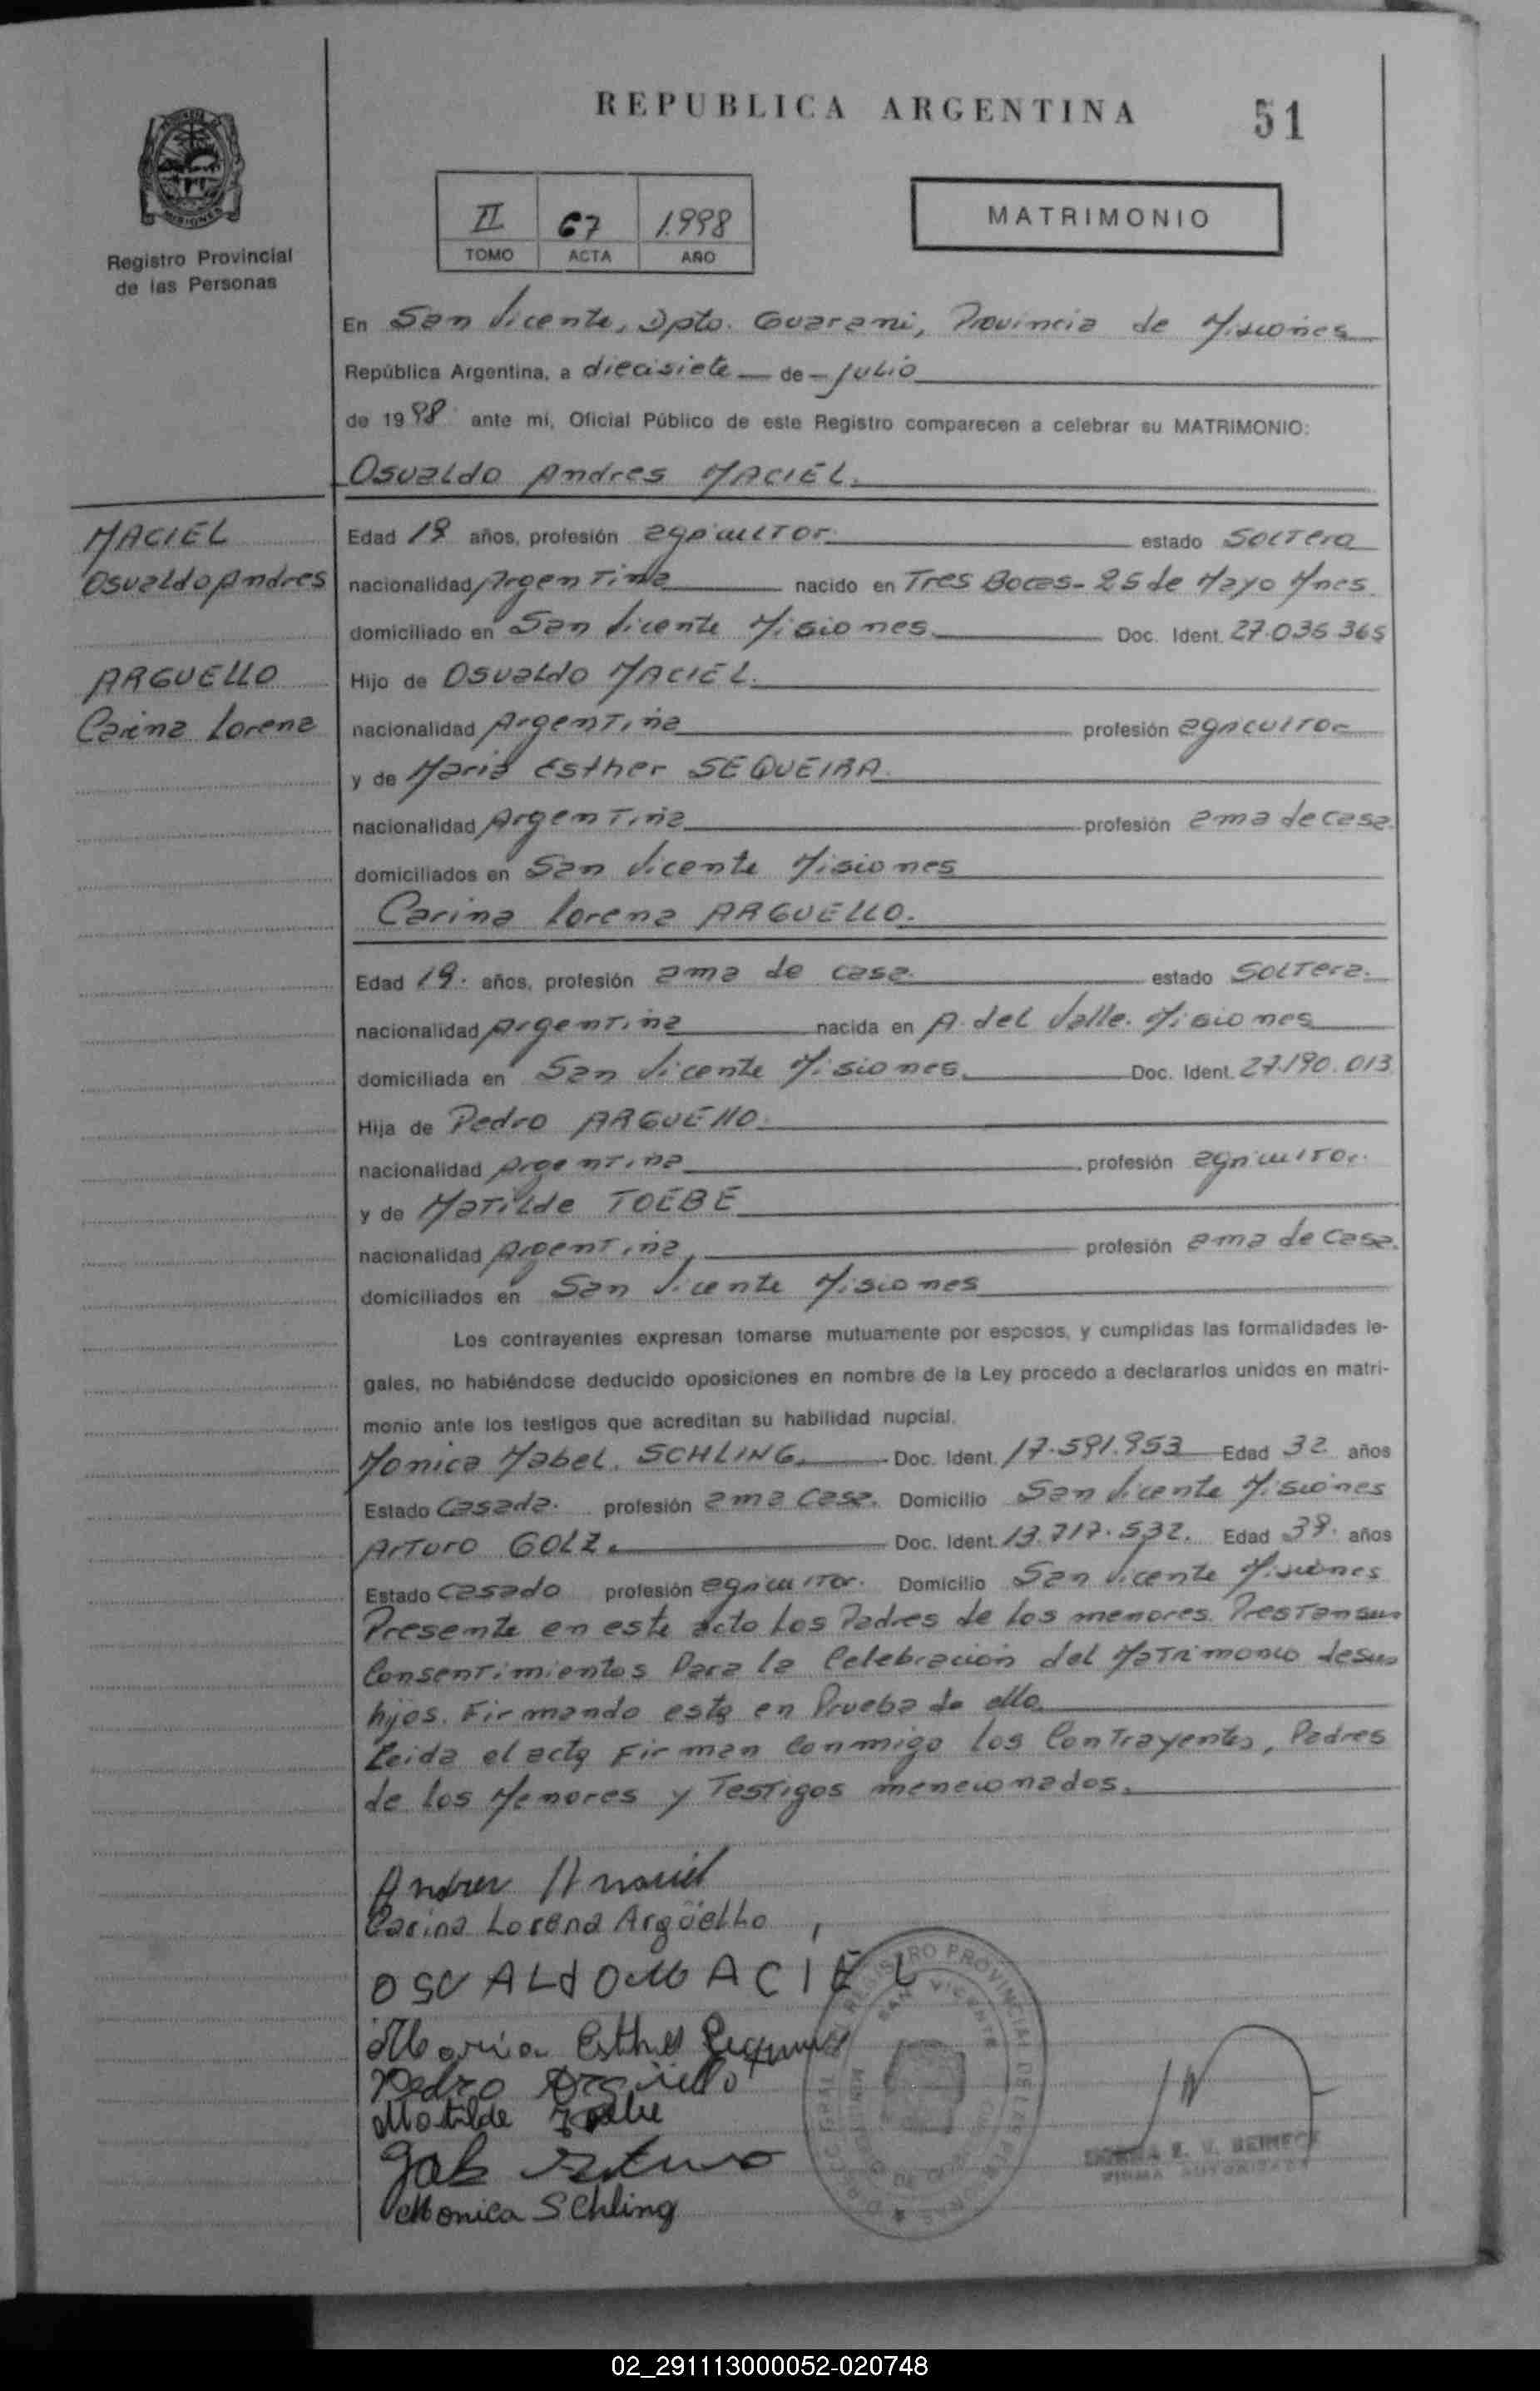 REPUBLICA ARGENTINA
51
MISIONES
Registro Provincial
de las Personas
II 67 1.998
TOMO ACTA AÑO
MATRIMONIO
En San Vicente, Dpto. Guarani, Provincia de Misiones
República Argentina, a diecisiete de julio
de 1998 ante mi, Oficial Público de este Registro comparecen a celebrar su MATRIMONIO:
Osvaldo Andres MACIEL.
MACIEL
Osvaldo Andres
ARGUELLO
Carina Lorena
Edad 19 años, profesión agricultor estado Soltero
nacionalidad Argentina nacido en Tres Bocas - 25 de Mayo Mnes.
domiciliado en San Vicente Misiones. Doc. Ident. 27.035.365
Hijo de Osvaldo MACIEL.
nacionalidad Argentina profesión agricultor
y de Maria Esther SEQUEIRA.
nacionalidad Argentina profesión ama de casa.
domiciliados en San Vicente Misiones
Carina Lorena ARGUELLO.
Edad 19. años, profesión ama de casa. estado Soltera.
nacionalidad Argentina nacida en A. del Valle. Misiones
domiciliada en San Vicente Misiones. Doc. Ident. 27.190.013
Hija de Pedro ARGUELLO.
nacionalidad Argentina profesión agricultor.
y de Matilde TOEBE
nacionalidad Argentina, profesión ama de casa.
domiciliados en San Vicente Misiones
Los contrayentes expresan tomarse mutuamente por esposos, y cumplidas las formalidades le-
gales, no habiéndose deducido oposiciones en nombre de la Ley procedo a declararlos unidos en matri-
monio ante los testigos que acreditan su habilidad nupcial.
Monica Mabel. SCHLING. Doc. Ident. 17.591.953 Edad 32 años
Estado Casada. profesión ama casa. Domicilio San Vicente Misiones
Arturo GOLZ. Doc. Ident. 13.717.532. Edad 39. años
Estado Casado profesión agricultor. Domicilio San Vicente Misiones
Presente en este acto los Padres de los menores. Prestan sus
Consentimientos Para la Celebración del Matrimonio de sus
hijos. Firmando esta en Prueba de ello.
Leida el acta Firman conmigo los Contrayentes, Padres
de los Menores y Testigos mencionados.
Andres Maciel
Carina Lorena Argüello
OSVALdO MACIEL
Maria Esther
Pedro Argüello
Matilde Toebe
Golz Arturo
Monica Schling
REGISTRO PROVINCIAL DE LAS PERSONAS
SAN VICENTE
FIRMA AUTORIZADA
02_291113000052-020748